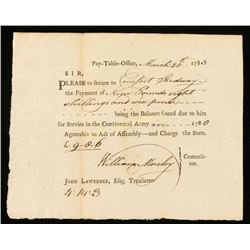 Pay-Table-Office, March 26th 1783
SIR,
PLEASE to secure to Comfort
the Payment of Nine Pounds eight
shillings and six pence
being the Balance found due to him
for Service in the Continental Army in 1780
Agreeable to Act of Assembly—and Charge the State.
£ 9-8-6
William Moseley } Commit-
tee.
JOHN LAWRENCE, Esq; Treasurer
4.14.3